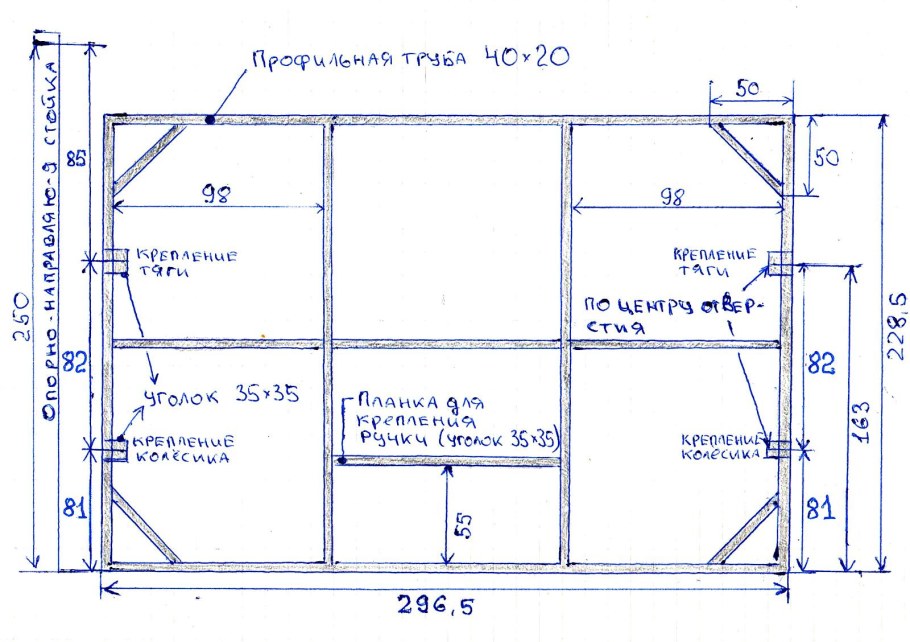 Профильная труба 40×20
50
Опорно-направляю-я стойка
85
50
98
98
крепление
тяги
крепление
тяги
по центру отвер-
стия
250
228,5
82
82
163
уголок 35×35
Планка для
крепления
ручки (уголок 35×35)
крепление
колёсика
крепление
колёсика
81
55
81
296,5